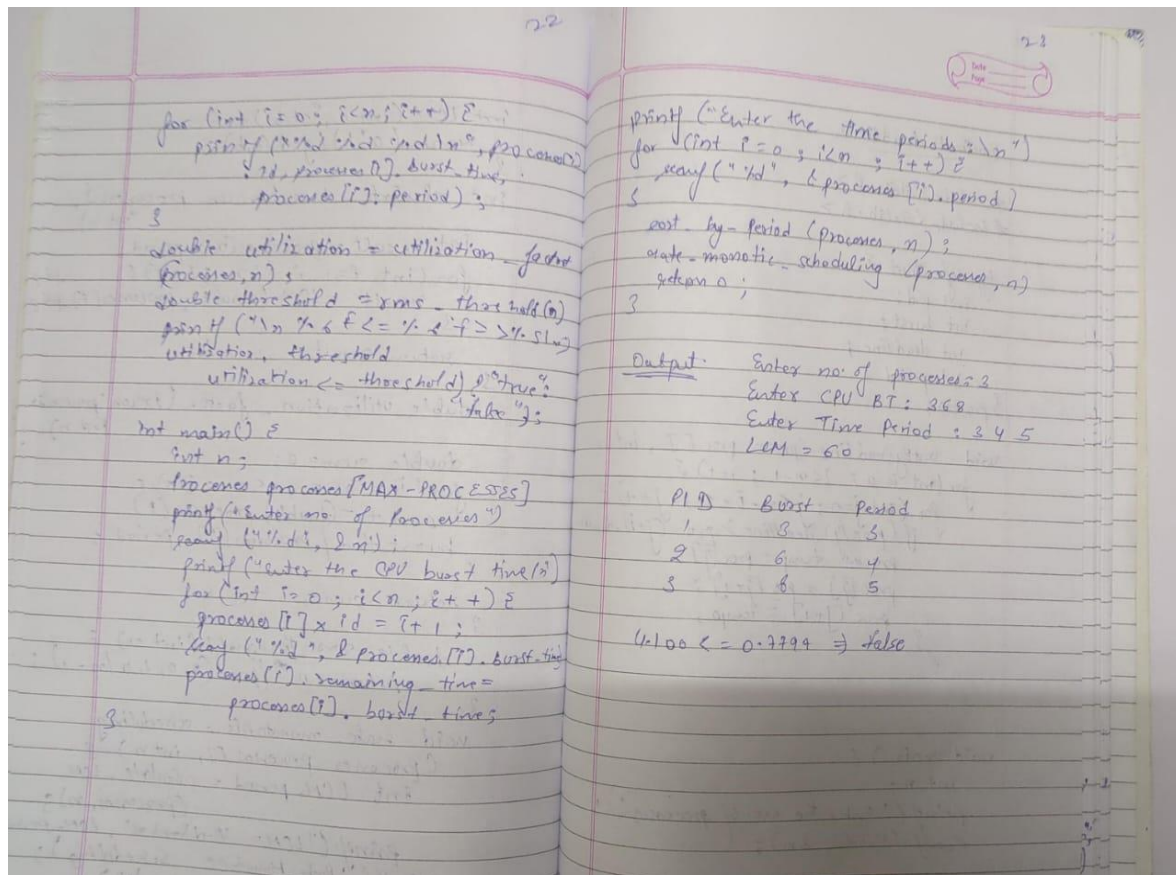 22
for (int i = 0 ; i<n ; i++) {
printf ("%d %d %d \n", processes[i]
. id, processes[i]. burst_time,
processes[i]. period) ;
}
double utilization = utilization_factor
(processes, n) ;
double threshold = rms_threshold(n)
printf ("\n %.6f <= %.6f => %s\n")
utilization, threshold
utilization <= threshold) ? "true":
"false");
int main() {
int n ;
Processes processes [MAX-PROCESSES]
printf ("Enter no of Processes")
scanf ("%d", &n) ;
printf ("enter the CPU burst time \n)
for (int i=0 ; i<n ; i++) {
processes [i] x id = i+1 ;
scanf ("%d", & processes [i]. burst_time
processes [i]. remaining_time =
processes [i]. burst_time ;
}
23
Date
Page
printf ("Enter the time periods : \n")
for (int i=0 ; i<n ; i++) {
scanf ("%d", & processes [i]. period)
}
sort_by-period (processes, n) ;
rate-monotic_scheduling (processes, n)
return 0 ;
}
Output
Enter no. of processes: 3
Enter CPU BT : 3 6 8
Enter Time Period : 3 4 5
LCM = 60
PID Burst Period
1 3 3
2 6 4
3 8 5
4.100 <= 0.7794 => false